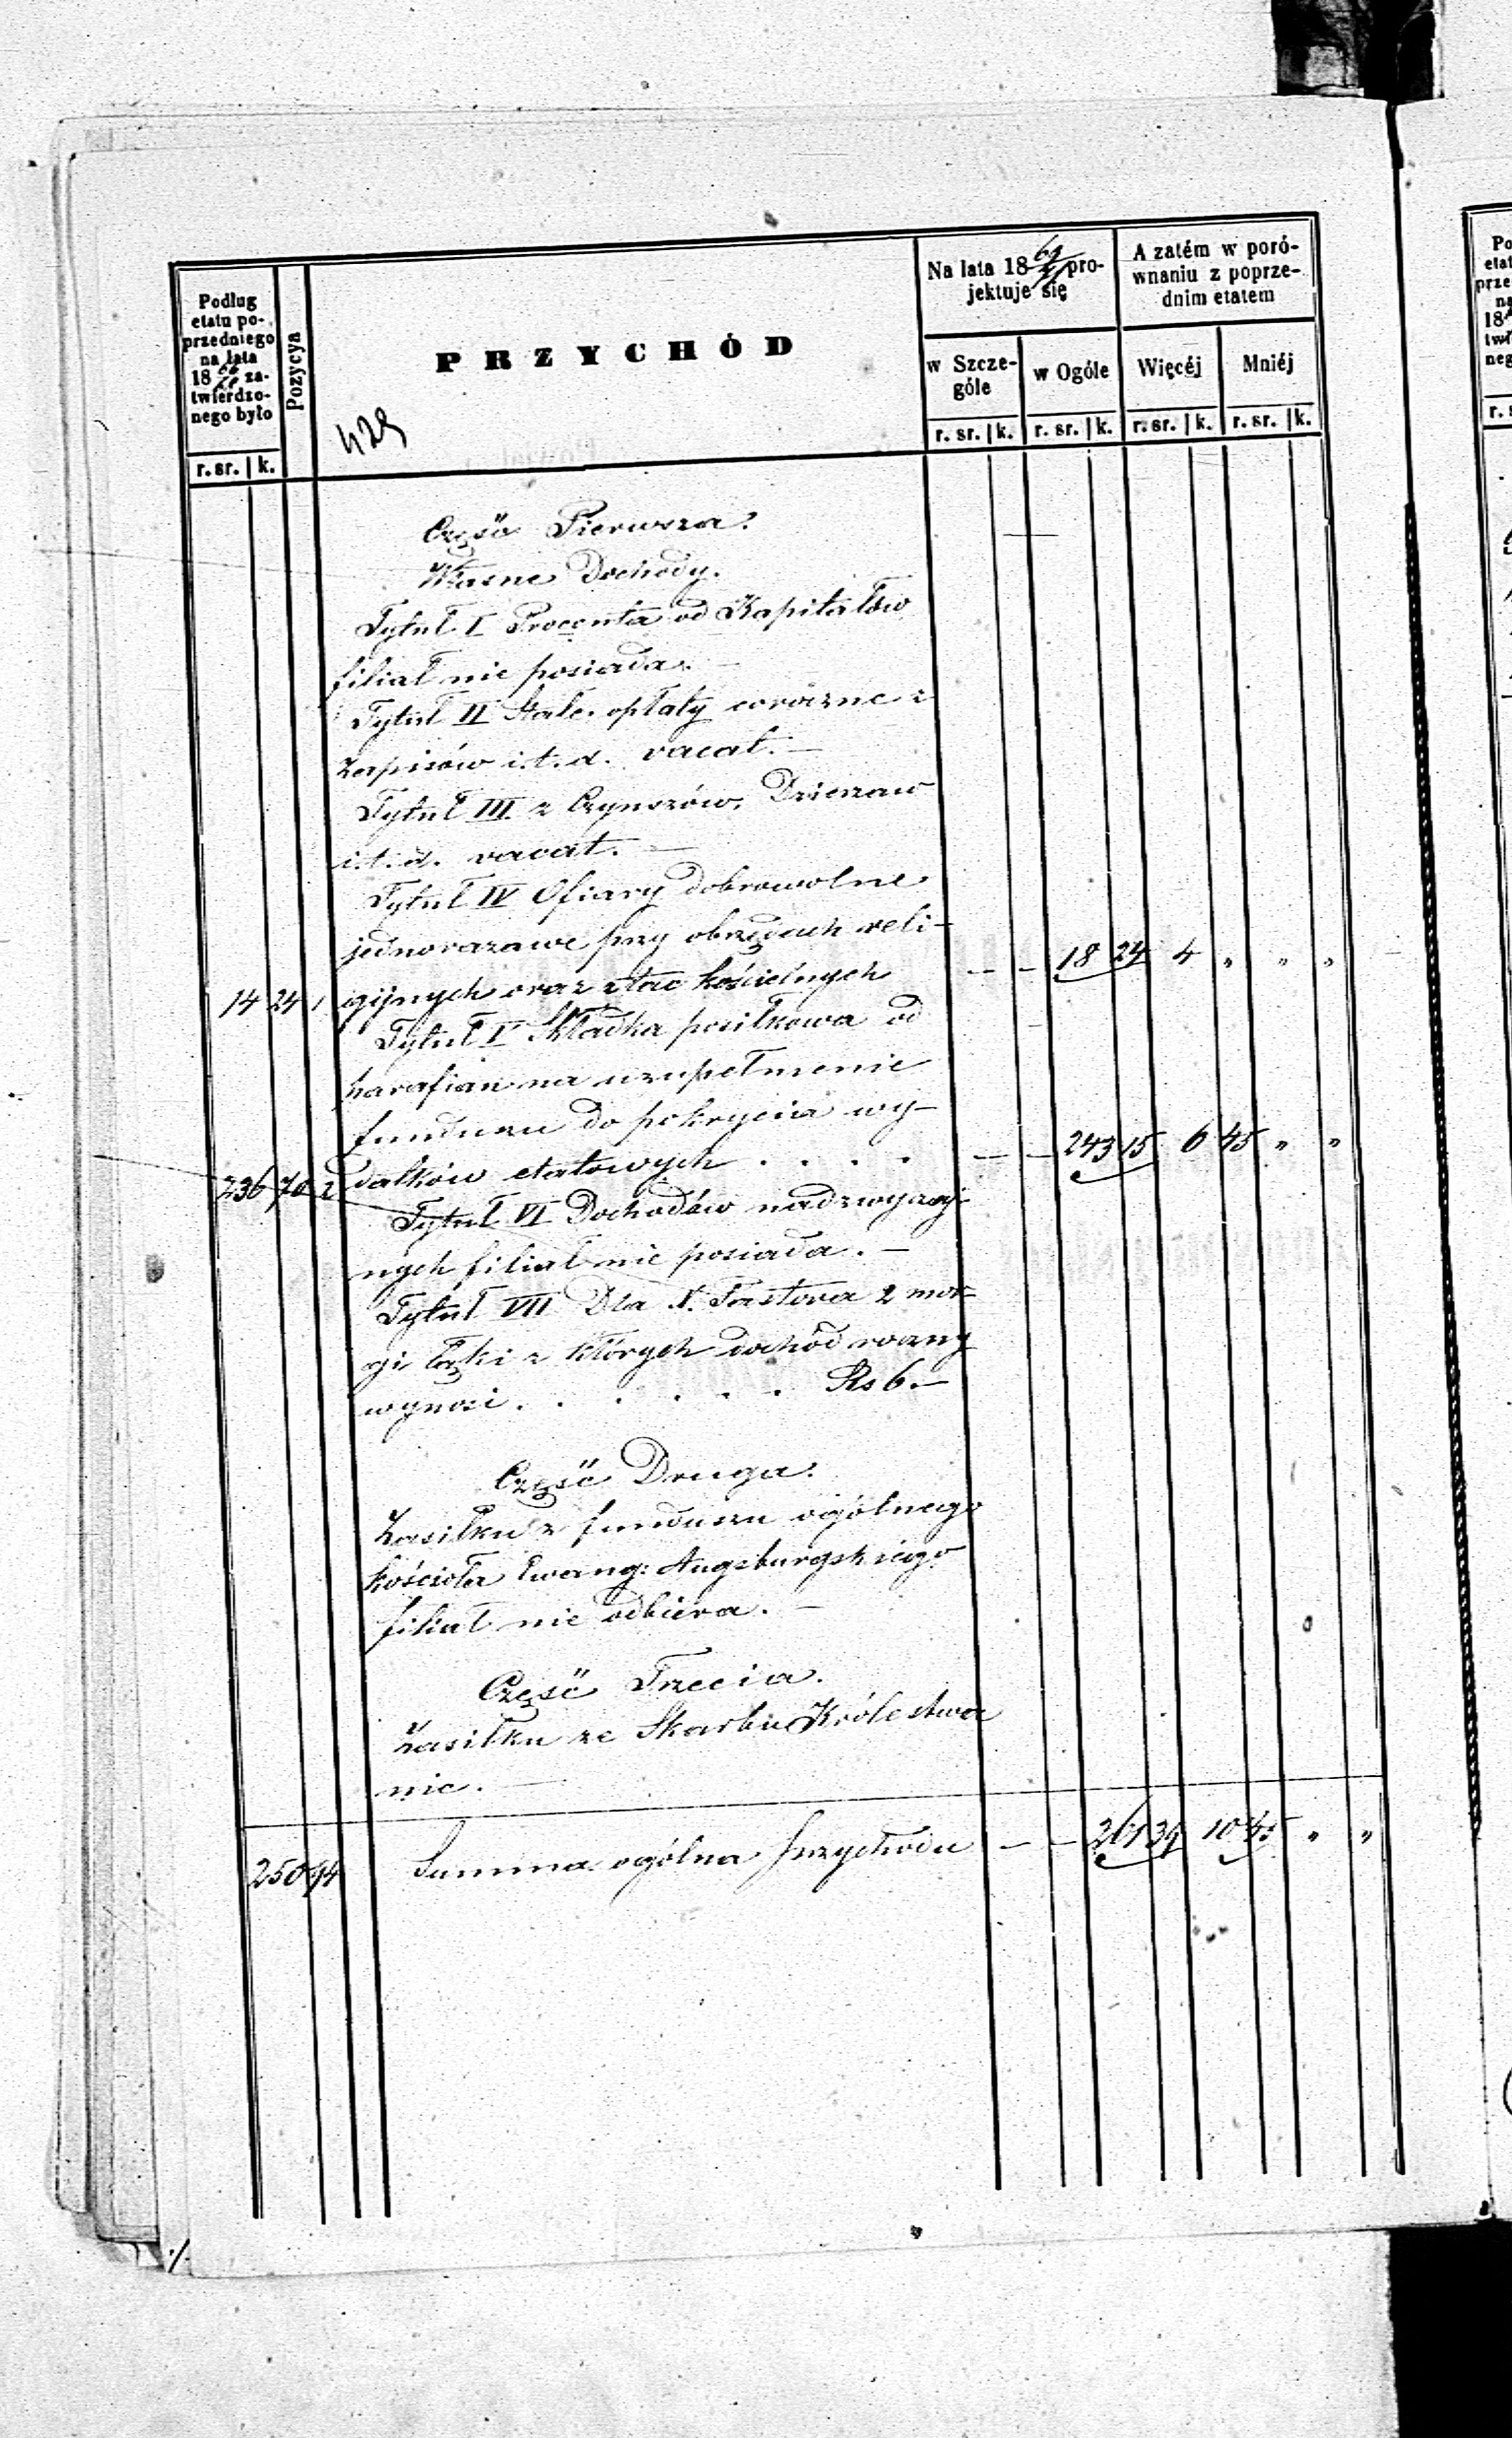 Podług etatu poprzedniego na lata 18 zatwierdzonego było
r. sr. | k.
Pozycya
PRZYCHÓD
429
Na lata 18 69/71 projektuje się
w Szczególe
r. sr. | k.
w Ogóle
r. sr. | k.
A zatém w porównaniu z poprzednim etatem
Więcéj
r. sr. | k.
Mniéj
r. sr. | k.
Część Pierwsza.
Własne Dochody.
Tytuł I Procenta od Kapitałów
filiał nie posiada. —
Tytuł II Stałe opłaty coroczne z
zapisów i.t.d. vacat. —
Tytuł III z Czynszów, Dzierzaw
i.t.d. vacat. —
Tytuł IV Ofiary dobrowolne
jednorazowe przy obrzędach reli-
14 24 1 gijnych oraz z tac kościelnych — — 18 24 4 " " "
Tytuł V Składka posiłkowa od
parafian na uzupełnienie
funduszu do pokrycia wy-
236 70 2 datków etatowych . . . . — — 243 15 6 45 " "
Tytuł VI Dochodów nadzwyczaj-
nych filiał nie posiada. —
Tytuł VII Dla X. Pastora 2 mor-
gi łąki z których dochód roczny
wynosi . . . . . . Rs 6. —
Część Druga.
Zasiłku z funduszu ogólnego
kościoła Ewang: Augsburgskiego
filiał nie odbiera. —
Część Trzecia.
Zasiłku ze Skarbu Królestwa
nic. —
250 94 Summa ogólna Przychodu — — 261 39 10 45 " "